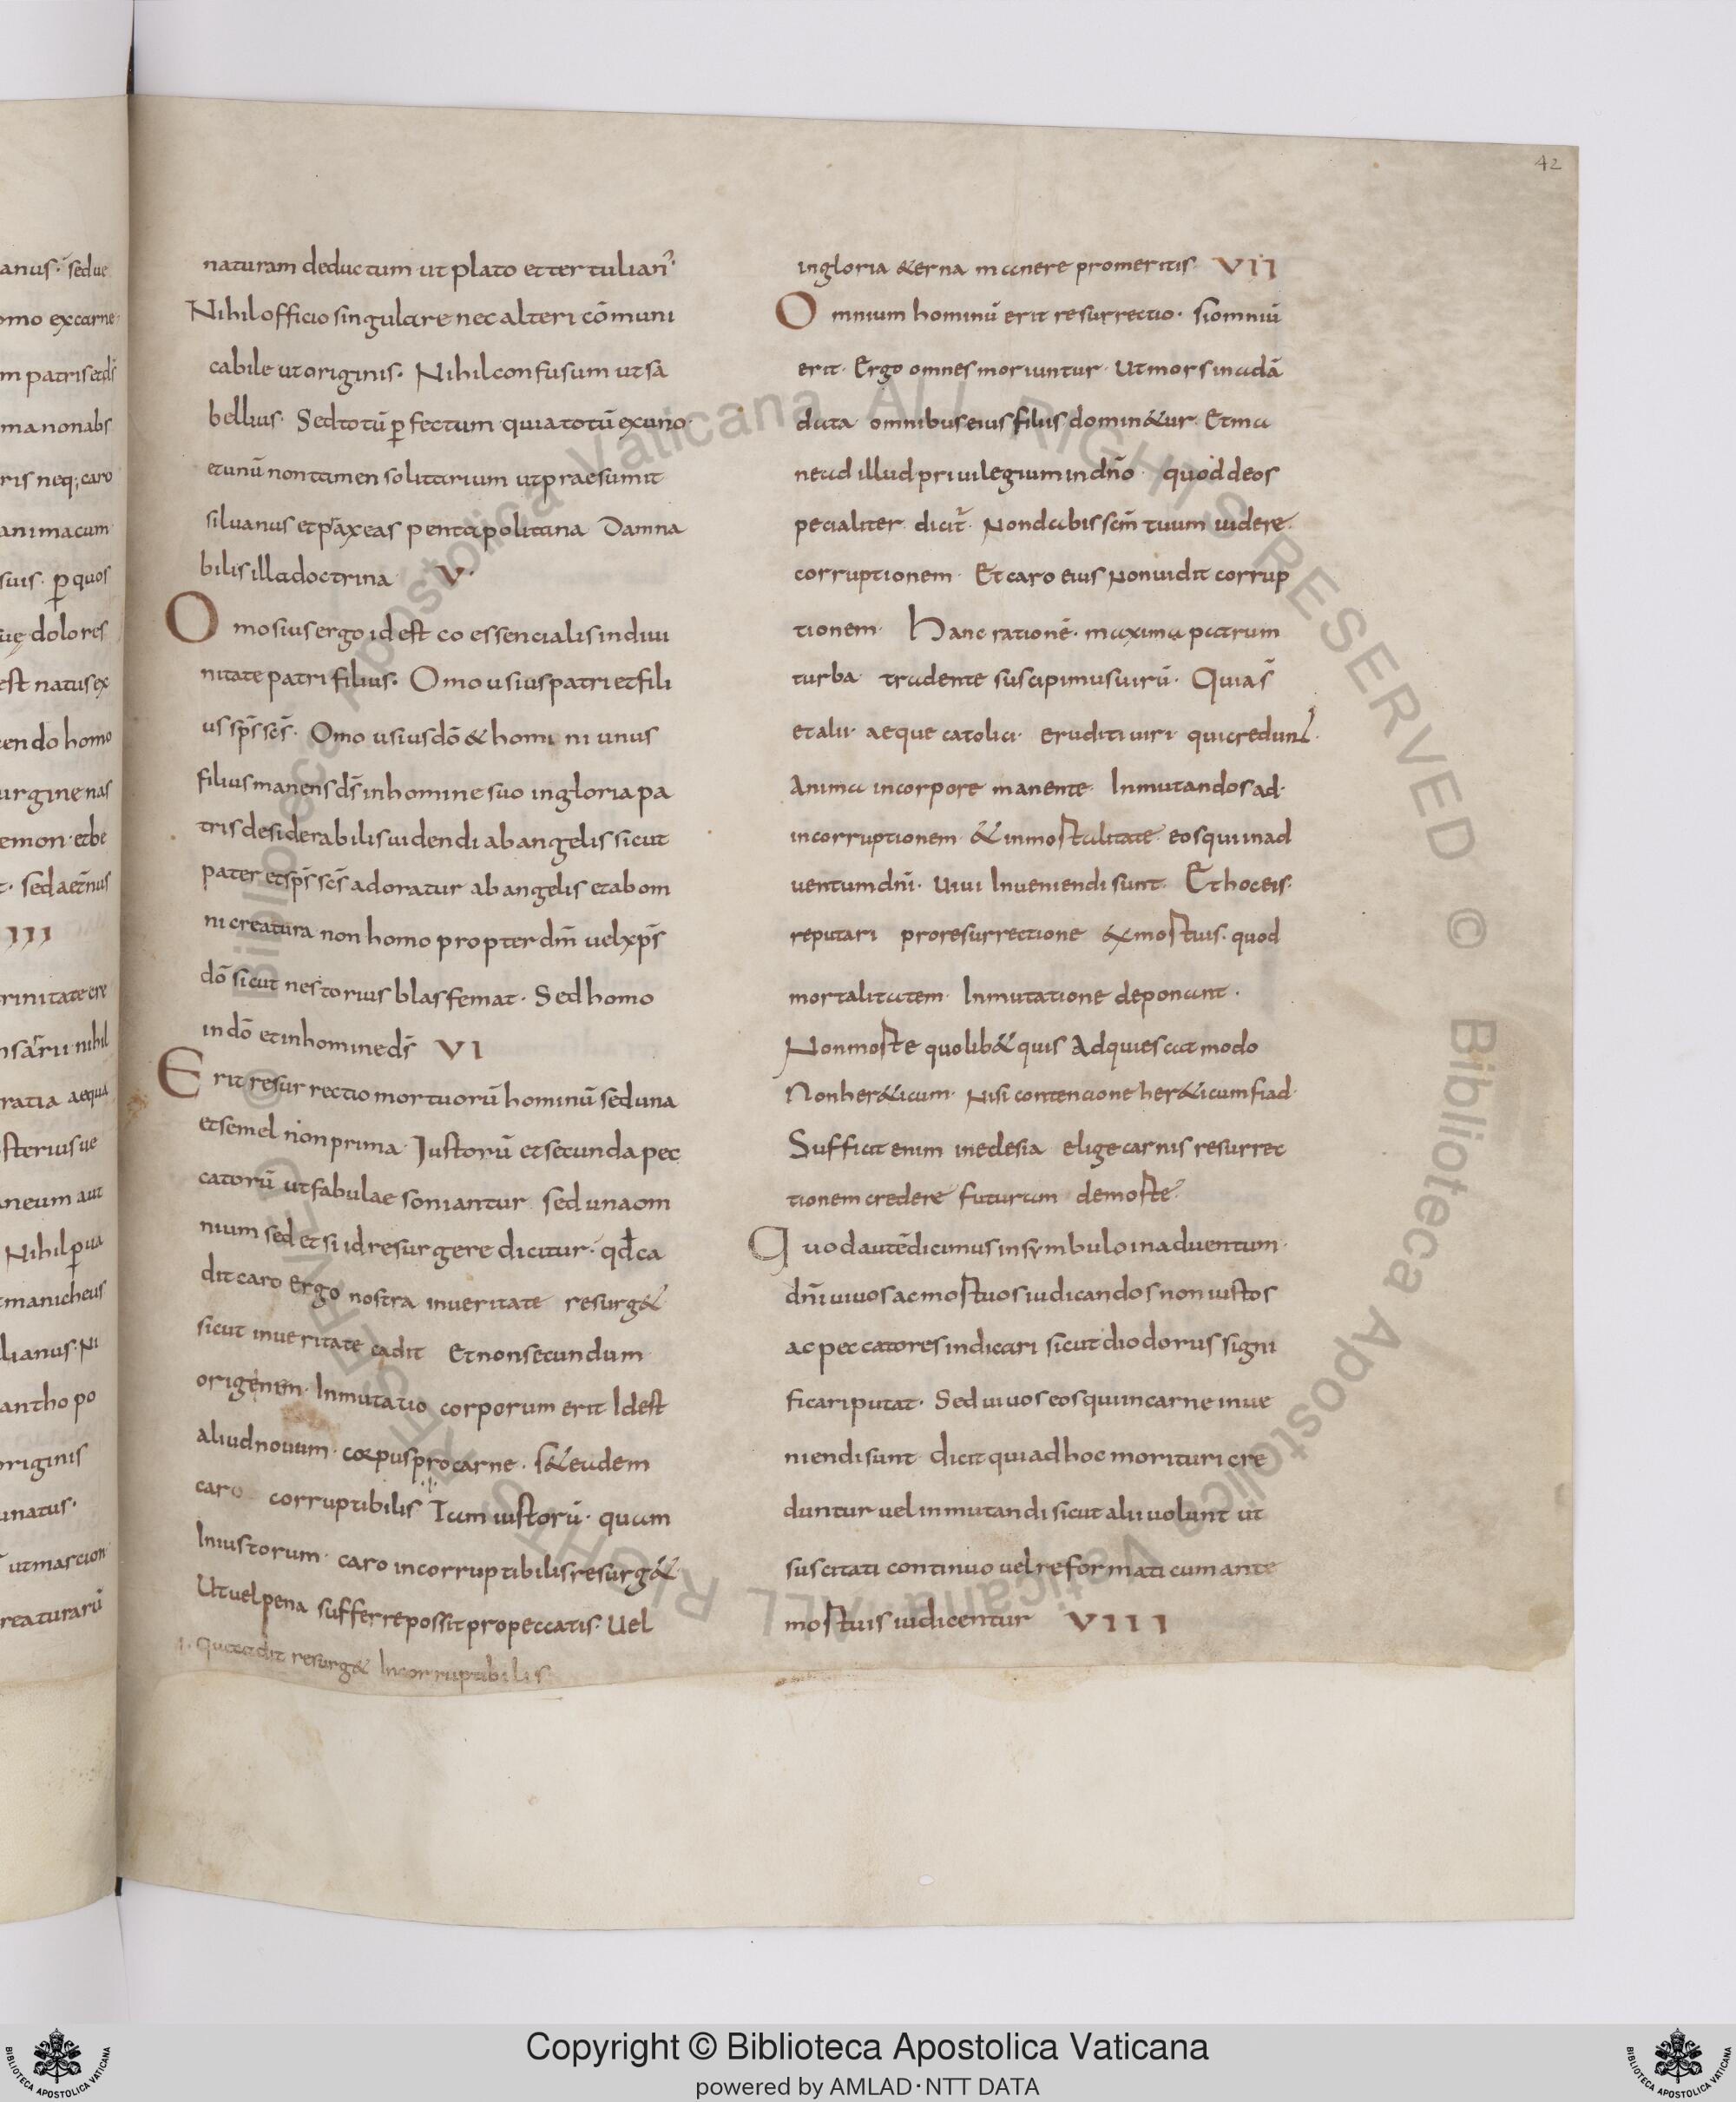 42
anus· sed ue
omo ex carne·
m patris et dī
ma non abs
ris neq; caro
anima cum
suis· ꝑ quos
uę dolores
est natus ex
endo homo
urgine nas
emon· et be
t· sed aetn̄us
III
rinitate cre
nihil
ratia aequa
sterius ue
aneum aut
Nihil ꝑ ua
manicheus
lianus· Ni
antho po
originis
unatus·
ut marcion
reaturarū
naturam deductum ut plato et tertulian᾽·
Nihil officio singulare nec alteri cōmuni
cabile ut originis· Nihil confusum ut sā
bellius· Sed totū ꝑfectum quia totū ex uno·
et unū non tamen solitarium ut praesumit
siluanus et praxeas pentapolitana Damna
bilis illa doctrina V·
Omosius ergo id est co essencialis in diui
nitate patri filius· Omousius patri et fili
us sp̄s sc̄s· Omousius dō & homini unus
filius manens ds̄ in homine suo in gloria pa
tris desiderabilis uidendi ab angelis sicut
pater et sp̄s sc̄s adoratur ab angelis et ab om
ni creatura non homo propter dn̄m uel xp̄s
dō sicut nestorius blasfemat· Sed homo
in dō et in homine ds̄ VI
Erit resurrectio mortuorū hominū sed una
et semel non prima· Iustorū et secunda pec
catorū ut fabulae soniantur sed una om
nium sed et si id resurgere dicitur· qđ ca
dit caro Ergo nostra in ueritate resurg&
sicut in ueritate cadit Et non secundum
origenem· Inmutatio corporum erit Id est
aliud nouum· corpus pro carne· s& eadem
caro corruptibilis Tam iustorū· quam
Iniustorum· caro incorruptibilis resurg&
Ut uel pena sufferre possit pro peccatis· Uel
Quae cadit resurg& Incorruptibilis
in gloria &erna manere pro meritis· VII
Omnium hominū erit resurrectio· si omniū
erit· Ergo omnes moriuntur· Ut mors in adā
data omnibus eius filiis domin&ur· Et ma
nead illud priuilegium in dn̄o quod de os
pecialiter· dicit̄· Non dabis scm̄ tuum uidere
corruptionem· Et caro eius Non uidit corrup
tionem· Hanc rationē· maxima patrum
turba tradente suscipimus uirū· Quia s̄
et alii· aeque catolici· eruditi uiri· qui credunt·
Anima in corpore manente· Inmutandos ad·
incorruptionem· & inmortalitate· eos qui in ad
uentum dn̄i· Uiui Inueniendi sunt· Et hoc eis·
reputari pro resurrectione ex mortuis· quod
mortalitatem· Inmutatione deponant·
Non morte quolib& quis Adquiescat modo
Non her&icum· Nisi contencione her&icum fiad·
Sufficit enim in eclesia elige carnis resurrec
tionem credere futuram de morte·
Quod autē dicimus in symbulo in aduentum·
dn̄i uiuos ac mortuos iudicandos non iustos
ac peccatores iudicari sicut diodorus signi
ficari putat· Sed uiuos eos qui in carne inue
niendi sunt dicit qui adhoc morituri cre
duntur uel inmutandi sicut alii uolunt ut
suscitati continuo uel reformati cum ante
mortuis iudicentur VIII
© Biblioteca Apostolica Vaticana ALL RIGHTS RESERVED © Biblioteca Apostolica Vaticana ALL RIGHTS RESERVED
Copyright © Biblioteca Apostolica Vaticana
powered by AMLAD·NTT DATA
BIBLIOTECA APOSTOLICA VATICANA
BIBLIOTECA APOSTOLICA VATICANA